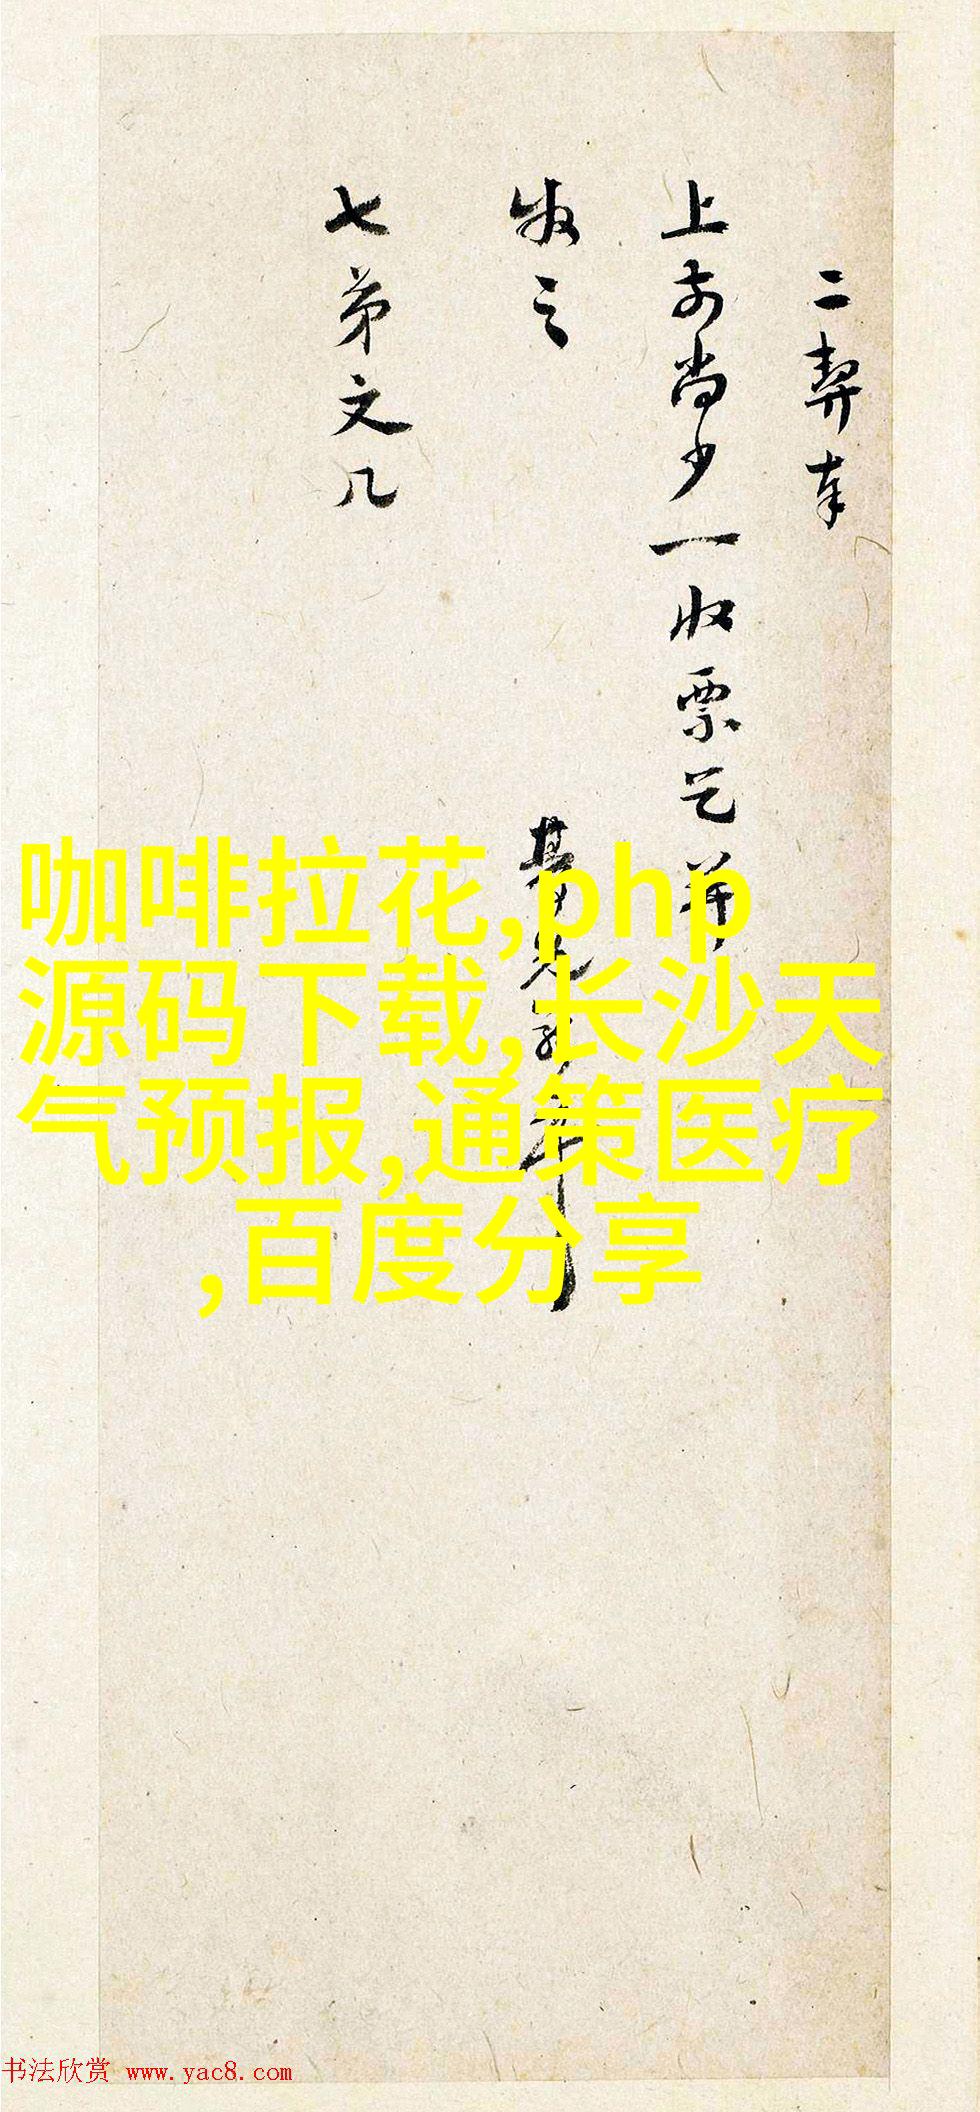 二契奉
上前尚少一收票乞并
收之
七弟文几
咖啡拉花,php
源码下载,长沙天
气预报,通策医疗
,百度分享
书法欣赏 www.yac8.com